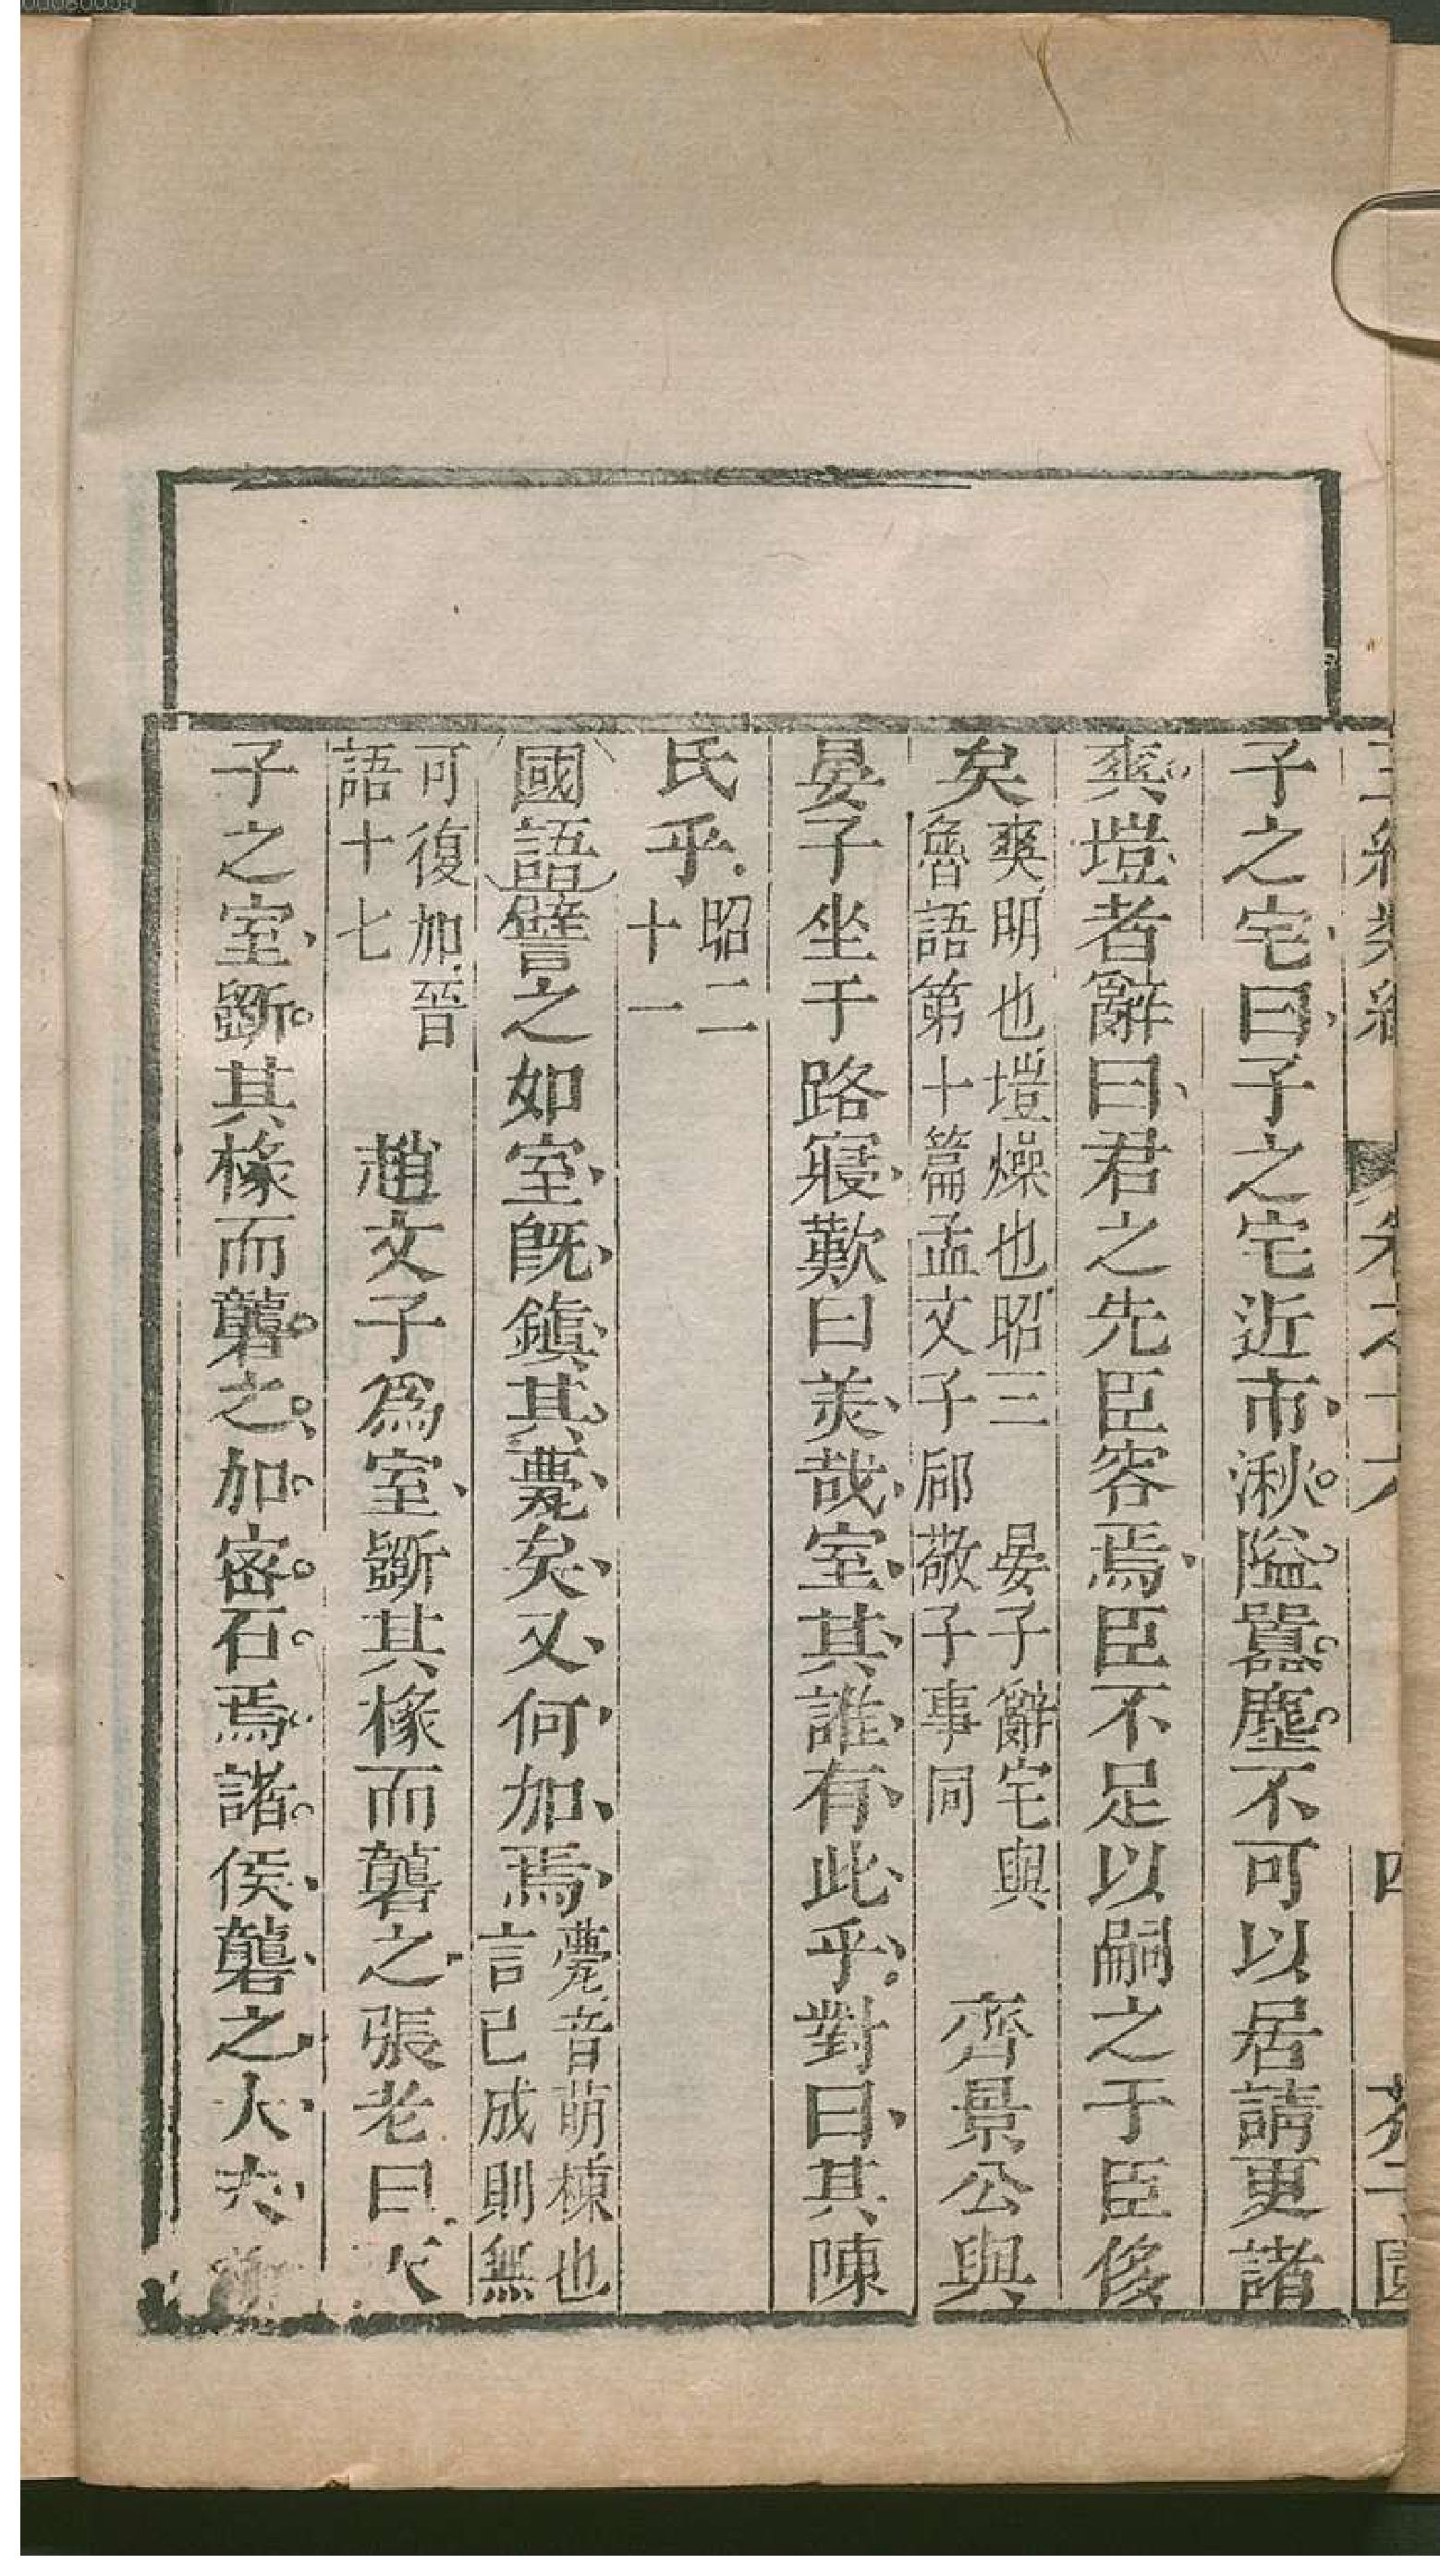 子之宅曰子之宅近市湫隘囂塵不可以居請更諸
爽塏者辭曰君之先臣容焉臣不足以嗣之于臣侈
矣爽明也塏燥也昭三 晏子辭宅與魯語第十篇孟文子郈敬子事同 齊景公與
晏子坐于路寢歎曰美哉室其誰有此乎對曰其陳
氏乎昭二十一
國語譬之如室旣鎮其甍矣又何加焉甍音萌棟也言已成則無
可復加晉語十七 趙文子爲室斲其椽而礱之張老曰天
子之室斲其椽而礱之加密石焉諸侯礱之大夫